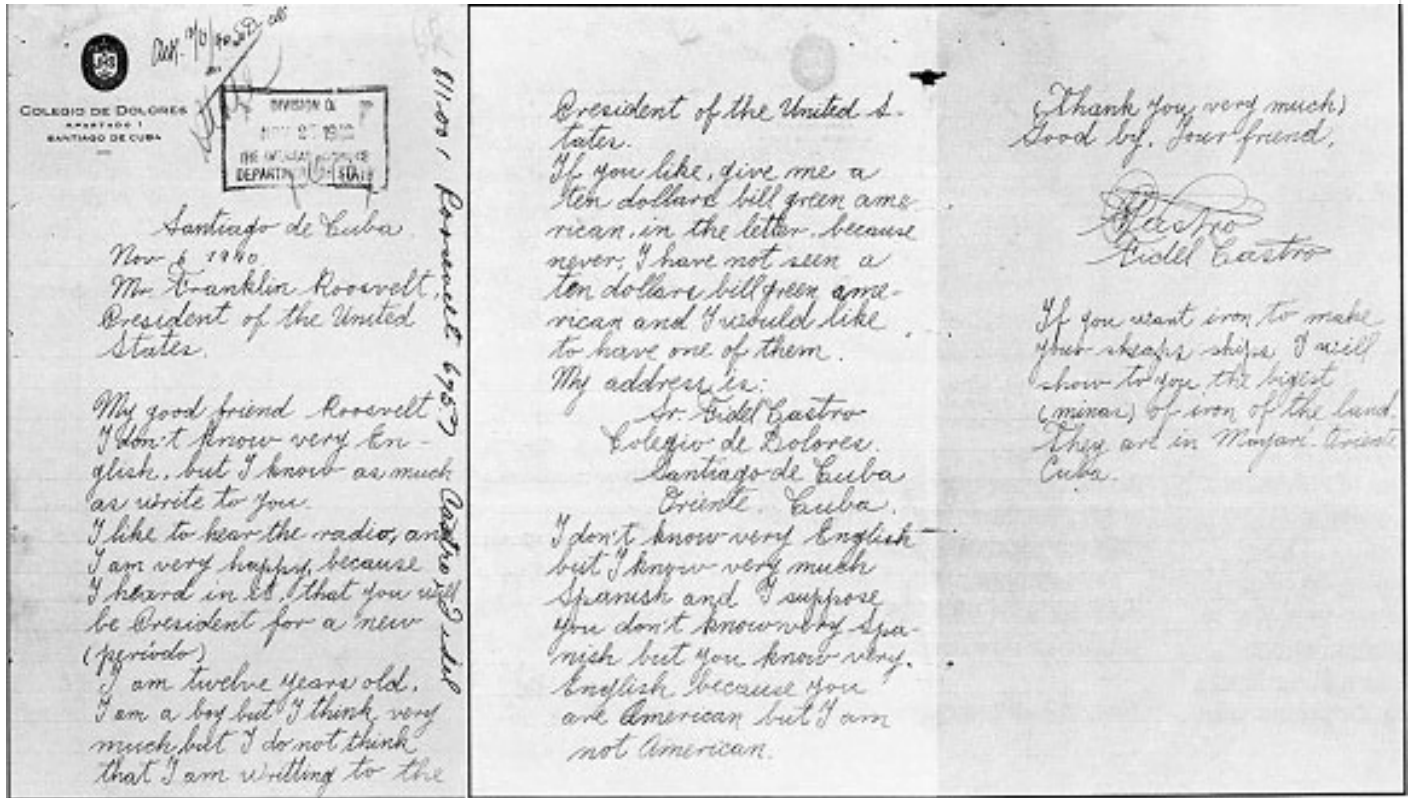 COLEGIO DE DOLORES
APARTADO 1
SANTIAGO DE CUBA
DIVISION
NOV 27 1940
DEPARTMENT OF STATE
811.001 Roosevelt
Castro, Fidel
Santiago de Cuba
Nov 6 1940
Mr. Franklin Roosvelt,
President of the United
States.
My good friend Roosvelt
I don't know very En-
glish, but I know as much
as write to you.
I like to hear the radio, and
I am very happy, because
I heard in it, that you will
be President for a new
(periodo)
I am twelve years old.
I am a boy but I think very
much but I do not think
that I am writting to the
President of the United S-
tates.
If you like, give me a
ten dollars bill green ame-
rican, in the letter, because
never, I have not seen a
ten dollars bill green ame-
rican and I would like
to have one of them.
My address is:
Sr. Fidel Castro
Colegio de Dolores.
Santiago de Cuba
Oriente Cuba.
I don't know very English
but I know very much
Spanish and I suppose
you don't know very Spa-
nish but you know very
English because you
are American but I am
not American.
(Thank you very much)
Good by. Your friend,
Fidel Castro
If you want iron to make
your sheaps ships I will
show to you the bigest
(minas) of iron of the land.
They are in Mayari Oriente
Cuba